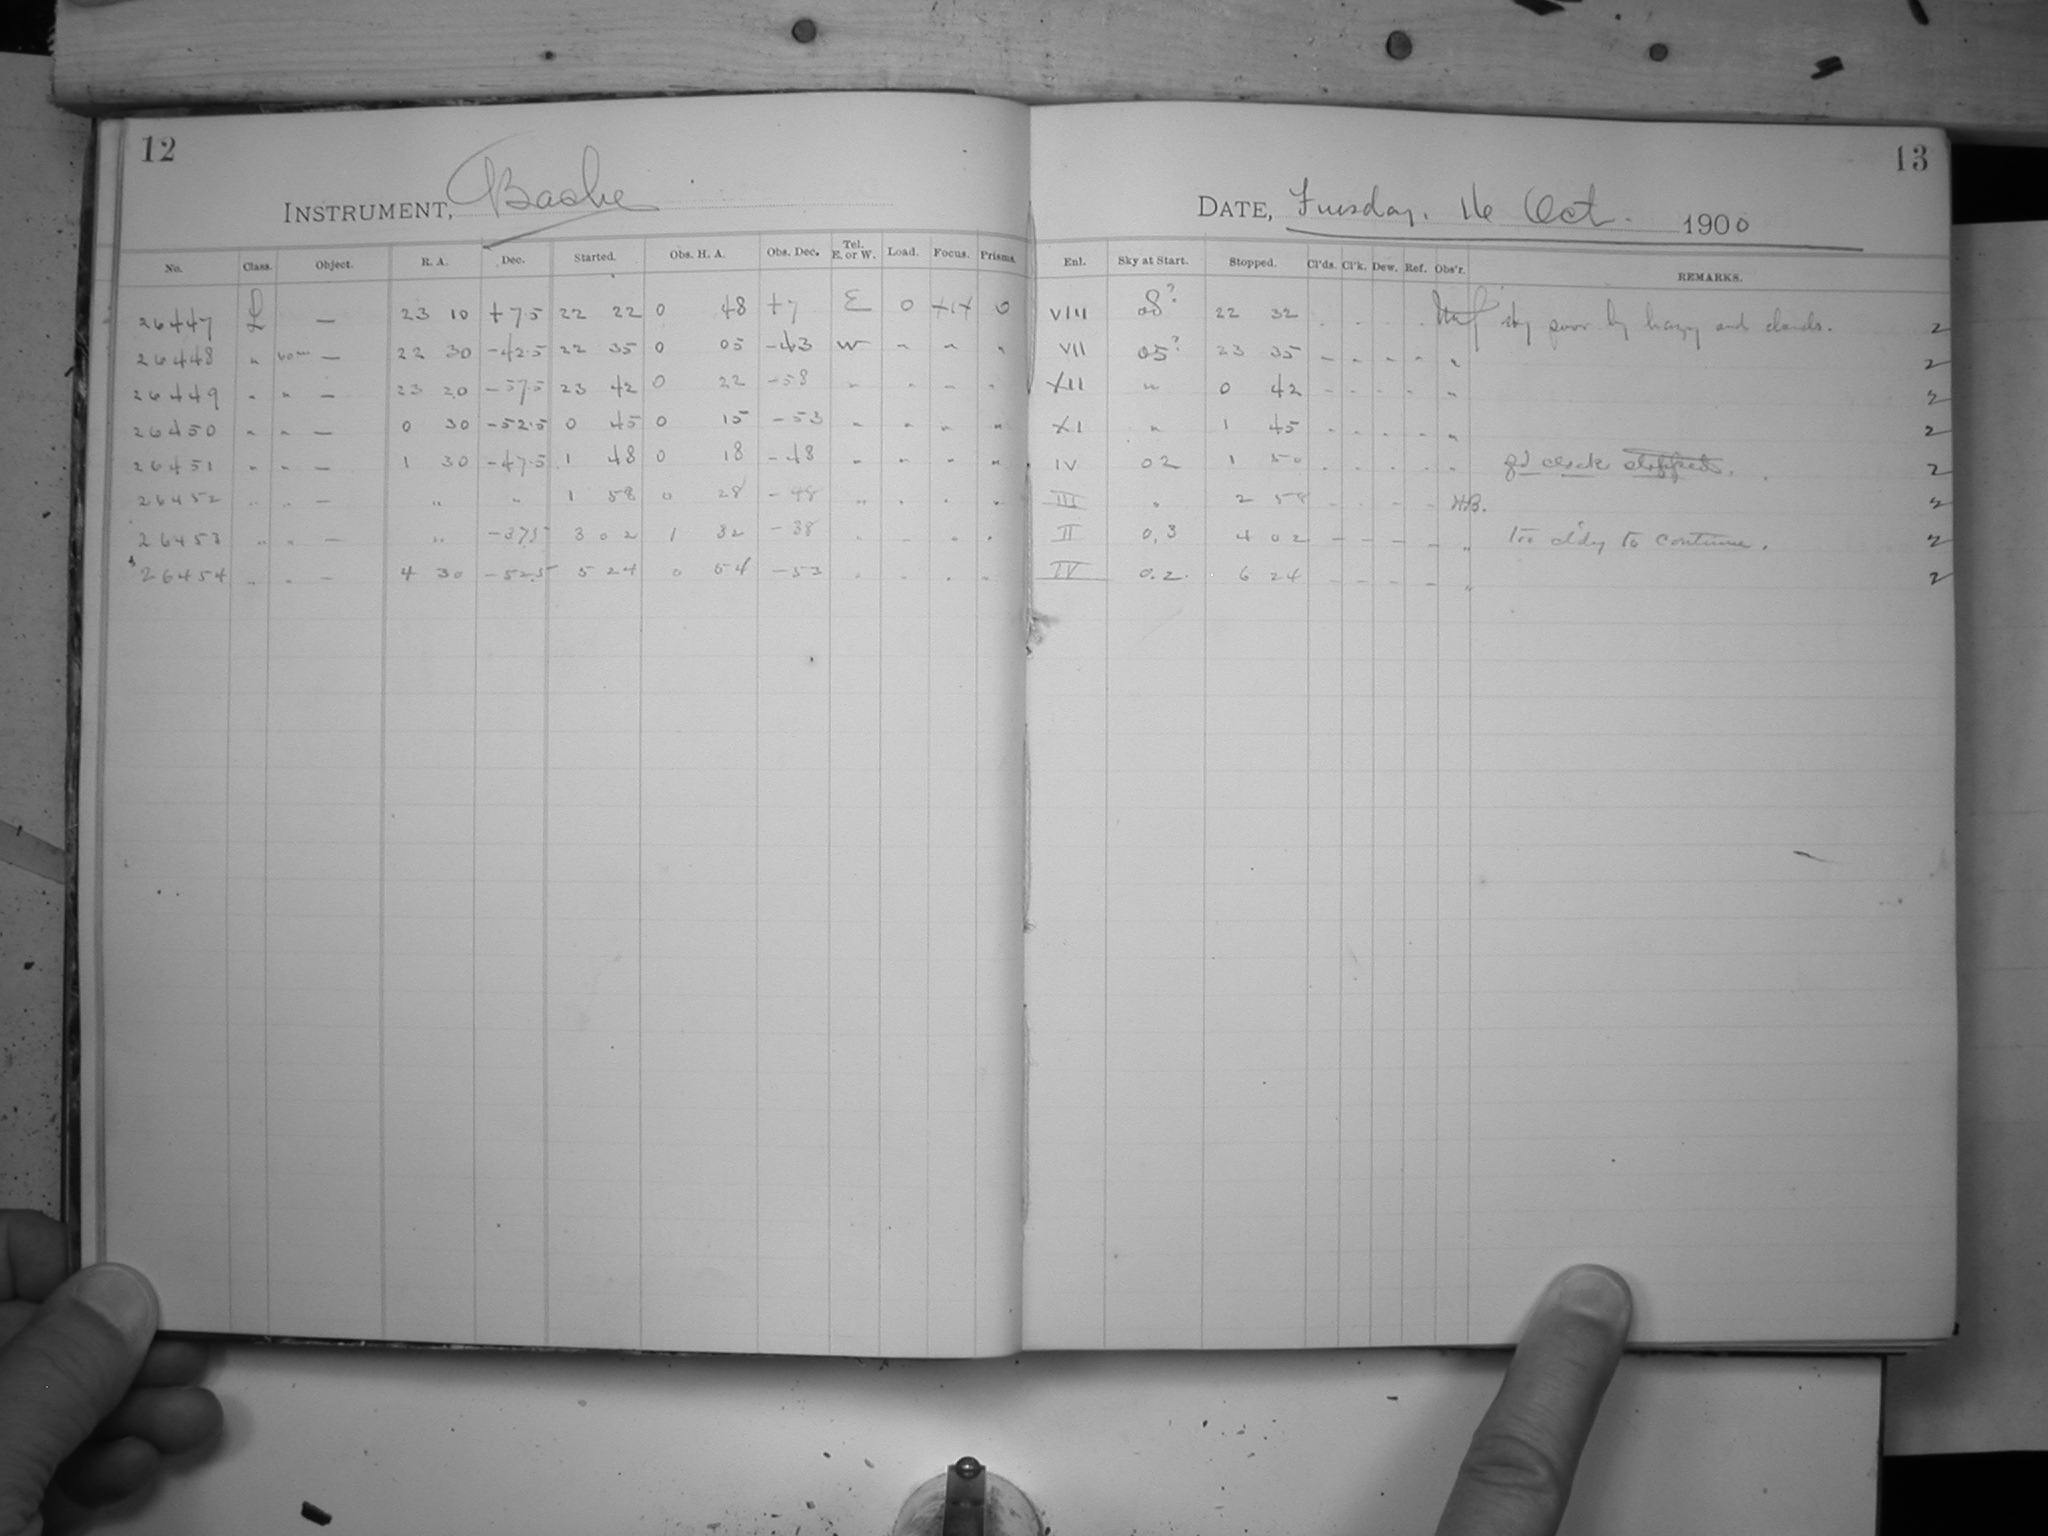 12
13
INSTRUMENT, Bache
DATE, Tuesday, 16 Oct. 1900
No. Class. Object. R. A. Dec. Started. Obs. H. A. Obs. Dec. Tel. E. or W. Load. Focus. Prisms. Enl. Sky at Start. Stopped. Cl'ds. Cl'k. Dew. Ref. Obs'r. REMARKS.
26447 L — 23 10 +7.5 22 22 0 48 +7 E 0 0 VIII 22 32 sky poor by hazy and clouds. 2
26448 " 60m — 22 30 -42.5 22 35 0 05 -43 W " " " VII 05? 23 35 - - - - " 2
26449 " " — 23 20 -57.5 23 42 0 22 -58 " " " " XII " 0 42 - - - - " 2
26450 " " — 0 30 -52.5 0 45 0 15 -53 " " " " XI " 1 45 - - - - " 2
26451 " " — 1 30 -47.5 1 48 0 18 -48 " " " " IV 02 1 50 - - - - " clock stopped. 2
26452 " " — " " 1 58 0 28 -48 " " " " III " 2 58 - - - - 2
26453 " " — " -37.5 3 02 1 32 -38 " " " " II 0.3 4 02 - - - - " Too cldy to continue. 2
26454 " " — 4 30 -52.5 5 24 0 54 -53 " " " " IV 0.2. 6 24 - - - - " 2